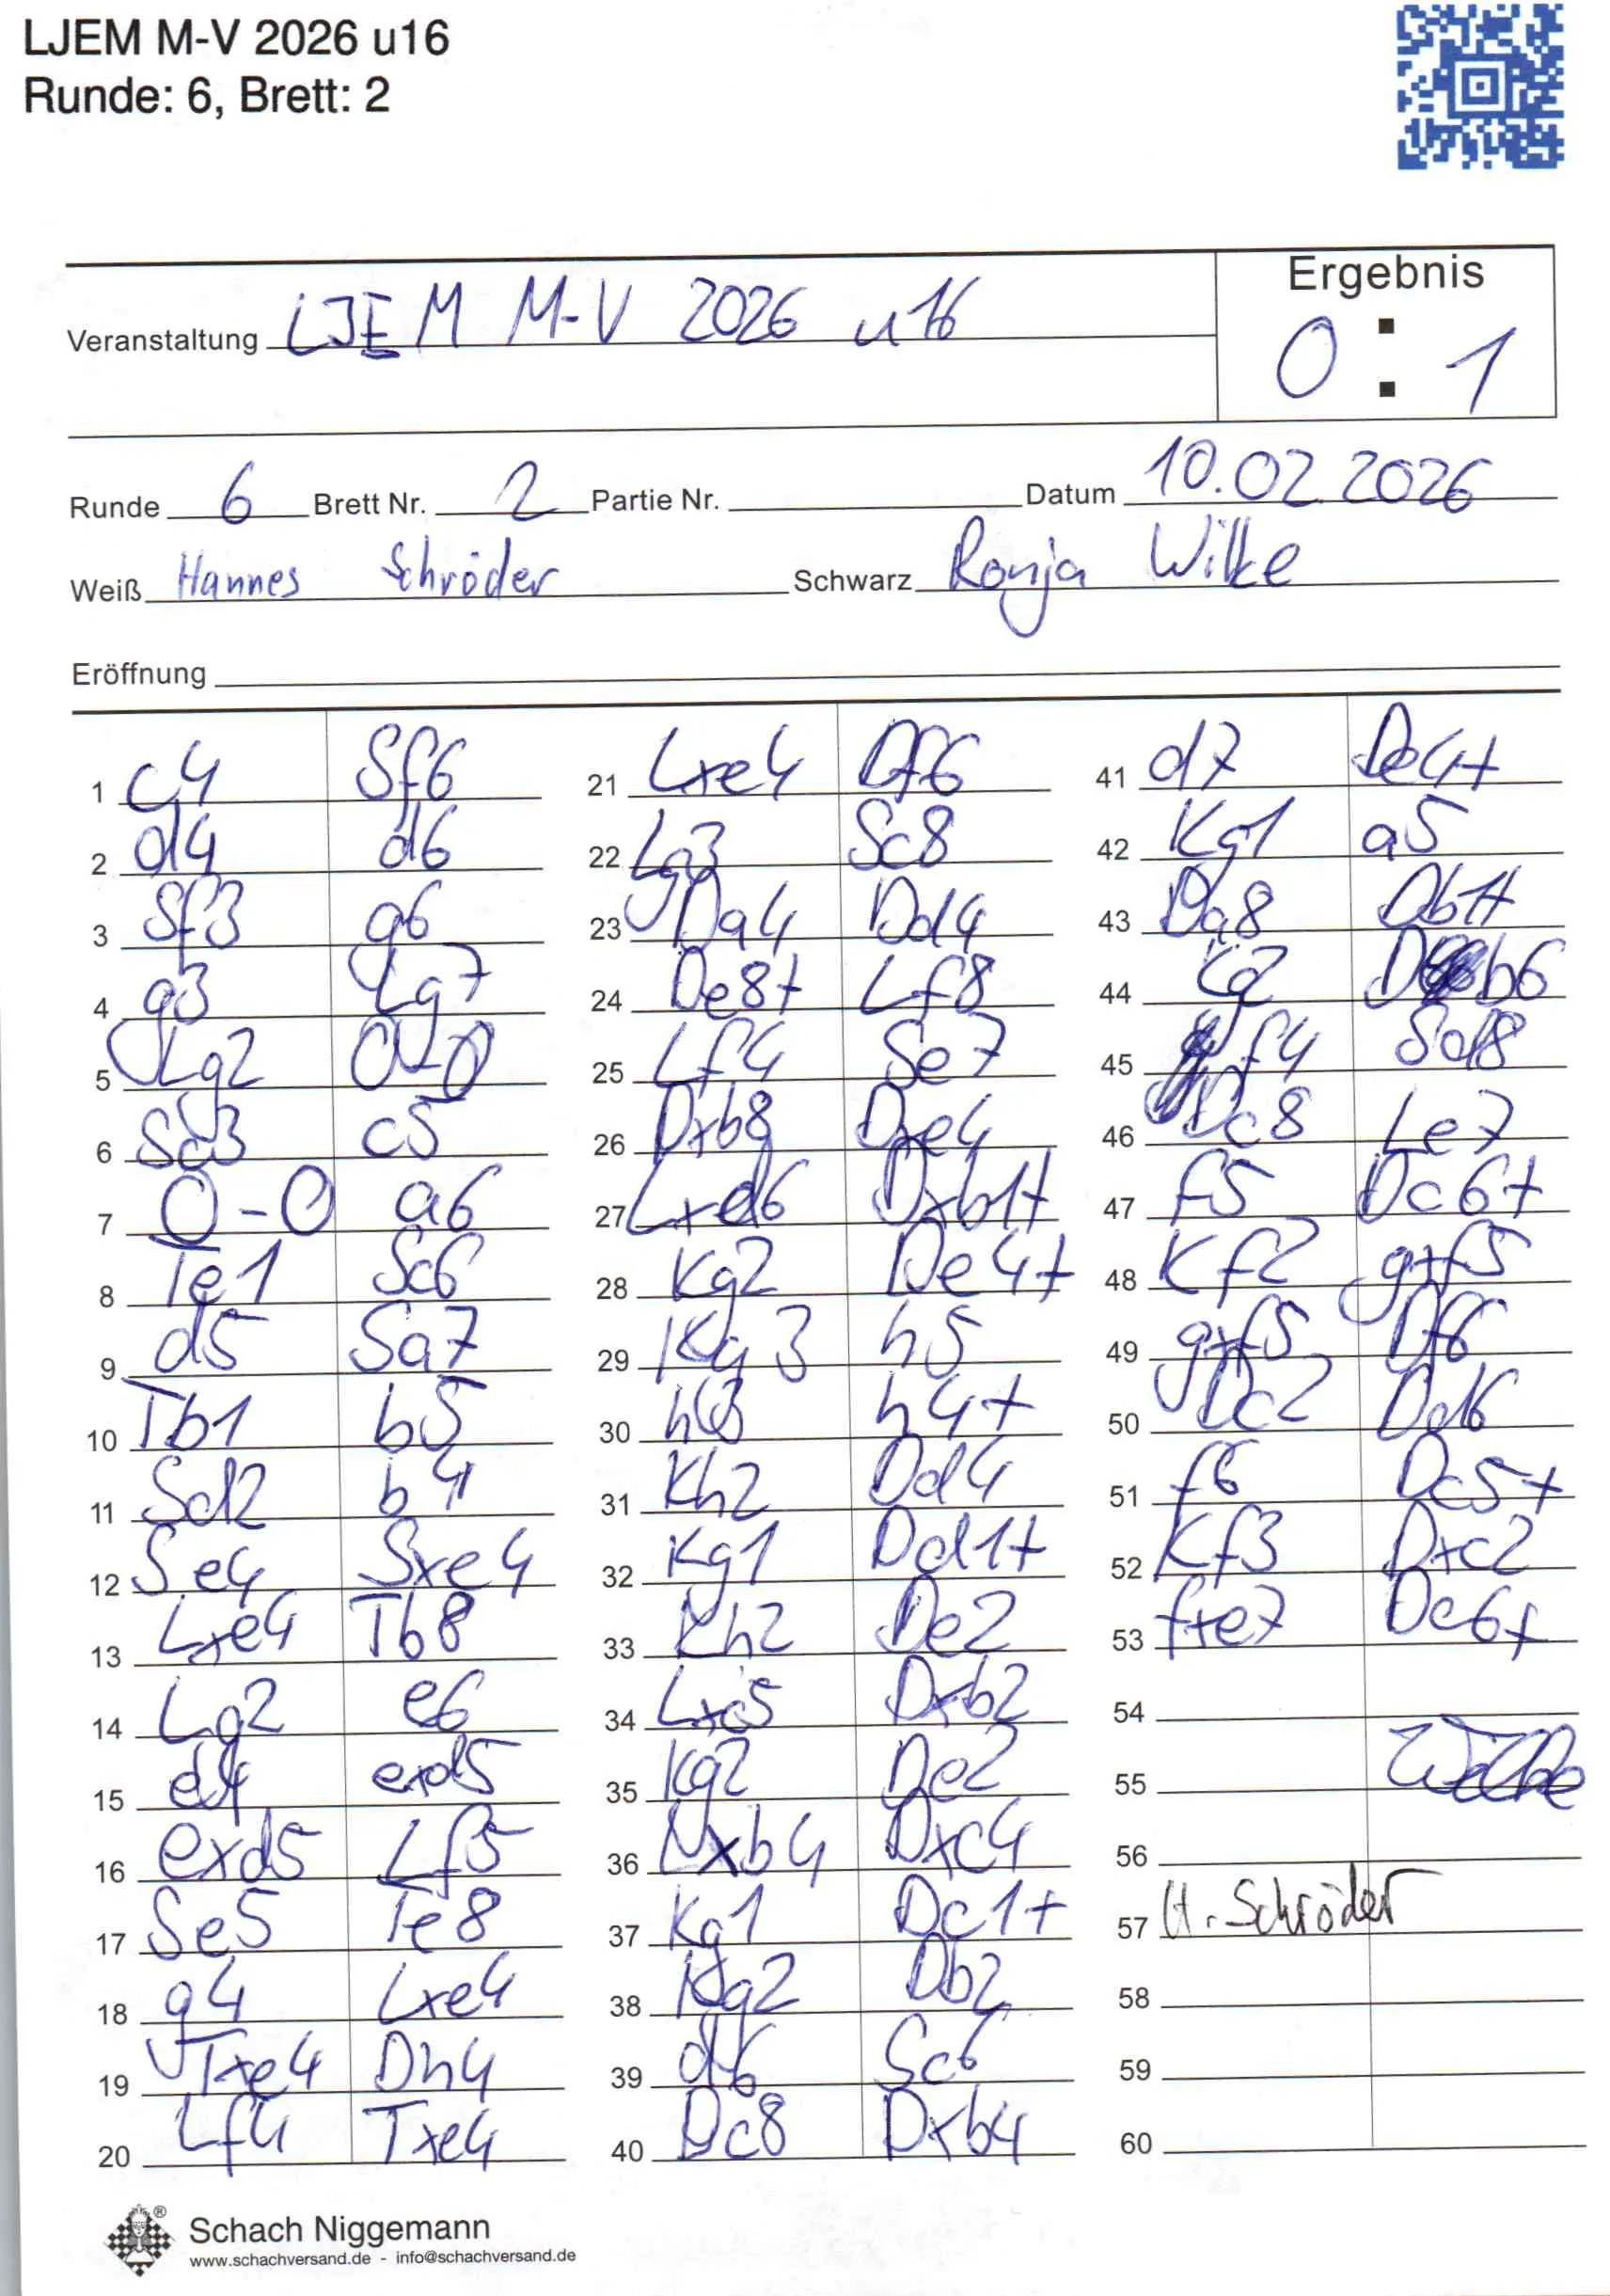 LJEM M-V 2026 u16
Runde: 6, Brett: 2
Ergebnis
Veranstaltung LJEM M-V 2026 u16
0 : 1
Runde 6 Brett Nr. 2 Partie Nr. Datum 10.02.2026
Weiß Hannes Schröder Schwarz Ronja Wilke
Eröffnung
1 c4 Sf6
2 d4 d6
3 Sf3 g6
4 g3 Lg7
5 Lg2 0-0
6 Sc3 c5
7 0-0 a6
8 Te1 Sc6
9 d5 Sa7
10 Tb1 b5
11 Sd2 b4
12 Se4 Sxe4
13 Lxe4 Tb8
14 Lg2 e6
15 e4 exd5
16 exd5 Lf5
17 Se5 Te8
18 g4 Lxe4
19 Txe4 Dh4
20 Lf4 Txe4
21 Lxe4 Df6
22 Lg3 Sc8
23 Da4 Dd4
24 De8+ Lf8
25 Lf4 Se7
26 Dxb8 Dxe4
27 Lxd6 Dxb1+
28 Kg2 De4+
29 Kg3 h5
30 h3 h4+
31 Kh2 Dd4
32 Kg1 Dd1+
33 Kh2 De2
34 Lxc5 Dxb2
35 Kg2 De2
36 Lxb4 Dxc4
37 Kg1 Dc1+
38 Kg2 Db2
39 d6 Sc6
40 Dc8 Dxb4
41 d7 De4+
42 Kg1 a5
43 Da8 Db1+
44 Kg2 Db6
45 f4 Sd8
46 Dc8 Le7
47 f5 Dc6+
48 Kf2 gxf5
49 gxf5 Df6
50 Dc2 Dd6
51 f6 Dc5+
52 Kf3 Dxc2
53 fxe7 Dc6+
54
55 Wilke
56
57 H. Schröder
58
59
60
Schach Niggemann
www.schachversand.de - info@schachversand.de